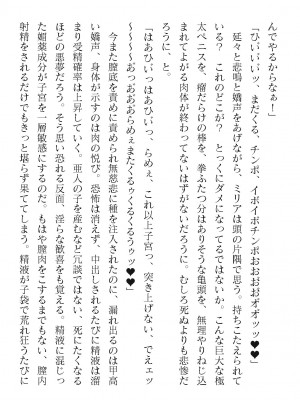 んでやるからなぁ！」
「ひいいいッ、まだくる、チンポ、イボイボチンポおおおおオオッッ♥♥」
　延々と悲鳴と嬌声をあげながら、ミリアは頭の片隅で思う。持ちこたえられて
いる？　これのどこが？　とっくにダメになってるではないか。こんな巨大な極
太ペニスを、瘤だらけの棒を、拳ふたつ分はありそうな亀頭を、無理やりねじ込
まれてよがる肉体が終わってないはずがないだろうに。むしろ死ぬよりも悲惨だ
ろうに、と。
「はあひいっはあひいっ、らめぇ、これ以上子宮っ、突き上げない、でえェッ
～～～～おっおおおらめぇまたくるゥくるくるうゥッ♥♥」
　今また膣底を責めに責められ無慈悲に種を注入されたのに、漏れ出るのは甲高
い嬌声、身体が示すのは肉の悦び。恐怖は消えず、中出しされるたびに精液は溜
まり受精確率は上昇していく。亜人の子を産むなど冗談ではない、死にたくなる
ほどの悪夢だろう。そう思い恐れる反面、淫らな歓喜をも覚える。精液に混じっ
た媚薬成分が子宮を一層敏感にするのだ。もはや膣肉を擦られるだけでも、膣内
射精をされるだけでもきっと堪らず果ててしまう。精液が子袋で荒れ狂うたびに